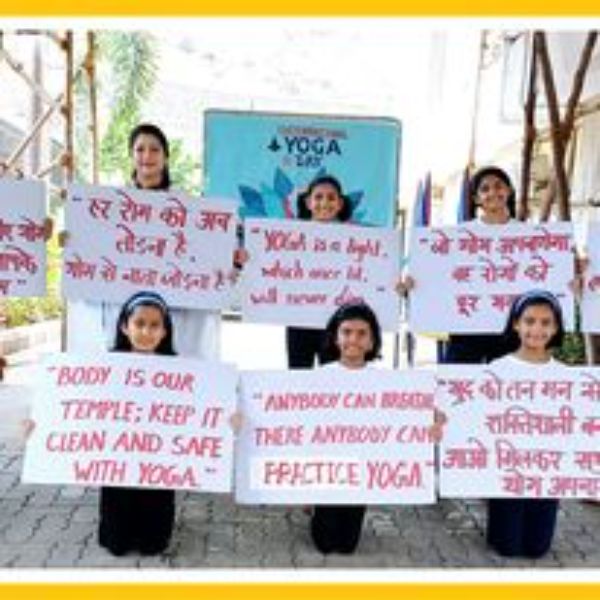 INTERNATIONAL
YOGA
DAY
"हर रोग को अब
तोडना है,
योग से नाता जोडना है"
"YOGA is a light,
which once lit,
will never
"जो योग अपनाएगा
वह रोगों को
दूर
"BODY IS OUR
TEMPLE; KEEP IT
CLEAN AND SAFE
WITH YOGA."
"ANYBODY CAN BREATHE
THERE ANYBODY CAN
PRACTICE YOGA"
"खुद को तन मन से
शक्तिशाली
आओ मिलकर सब
योग